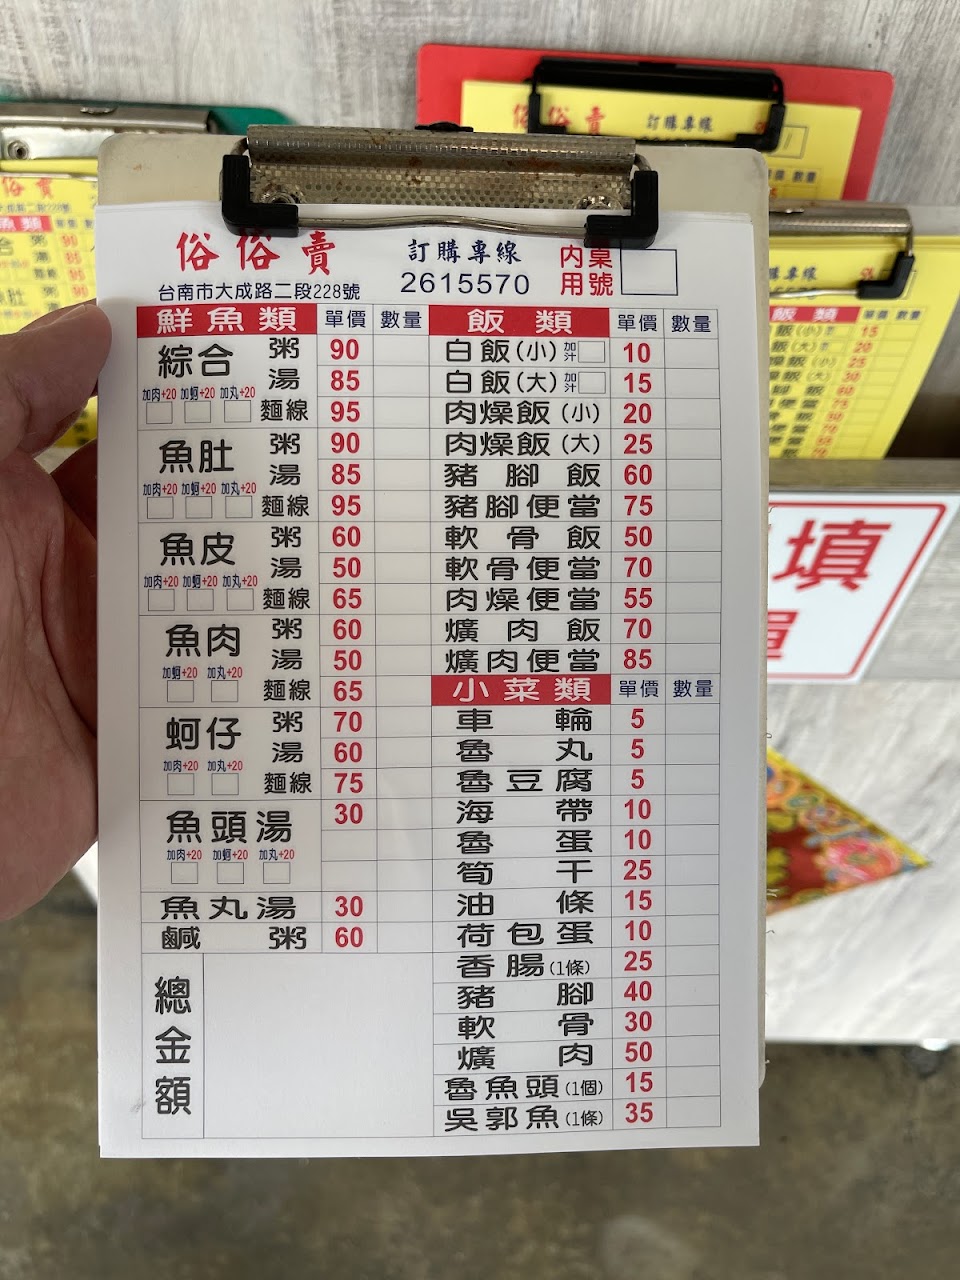 俗俗賣 訂購專線 內用 桌號
台南市大成路二段228號 2615570
鮮魚類 單價 數量
綜合 粥 90
湯 85
加肉+20 加蚵+20 加丸+20 麵線 95
魚肚 粥 90
湯 85
加肉+20 加蚵+20 加丸+20 麵線 95
魚皮 粥 60
湯 50
加肉+20 加蚵+20 加丸+20 麵線 65
魚肉 粥 60
湯 50
加蚵+20 加丸+20 麵線 65
蚵仔 粥 70
湯 60
加肉+20 加丸+20 麵線 75
魚頭湯 30
加肉+20 加蚵+20 加丸+20
魚丸湯 30
鹹粥 60
總金額
飯類 單價 數量
白飯(小) 加汁 10
白飯(大) 加汁 15
肉燥飯(小) 20
肉燥飯(大) 25
豬腳飯 60
豬腳便當 75
軟骨飯 50
軟骨便當 70
肉燥便當 55
爌肉飯 70
爌肉便當 85
小菜類 單價 數量
車輪 5
魯丸 5
魯豆腐 5
海帶 10
魯蛋 10
筍干 25
油條 15
荷包蛋 10
香腸(1條) 25
豬腳 40
軟骨 30
爌肉 50
魯魚頭(1個) 15
吳郭魚(1條) 35
俗俗賣 訂購專線
數量
填
單